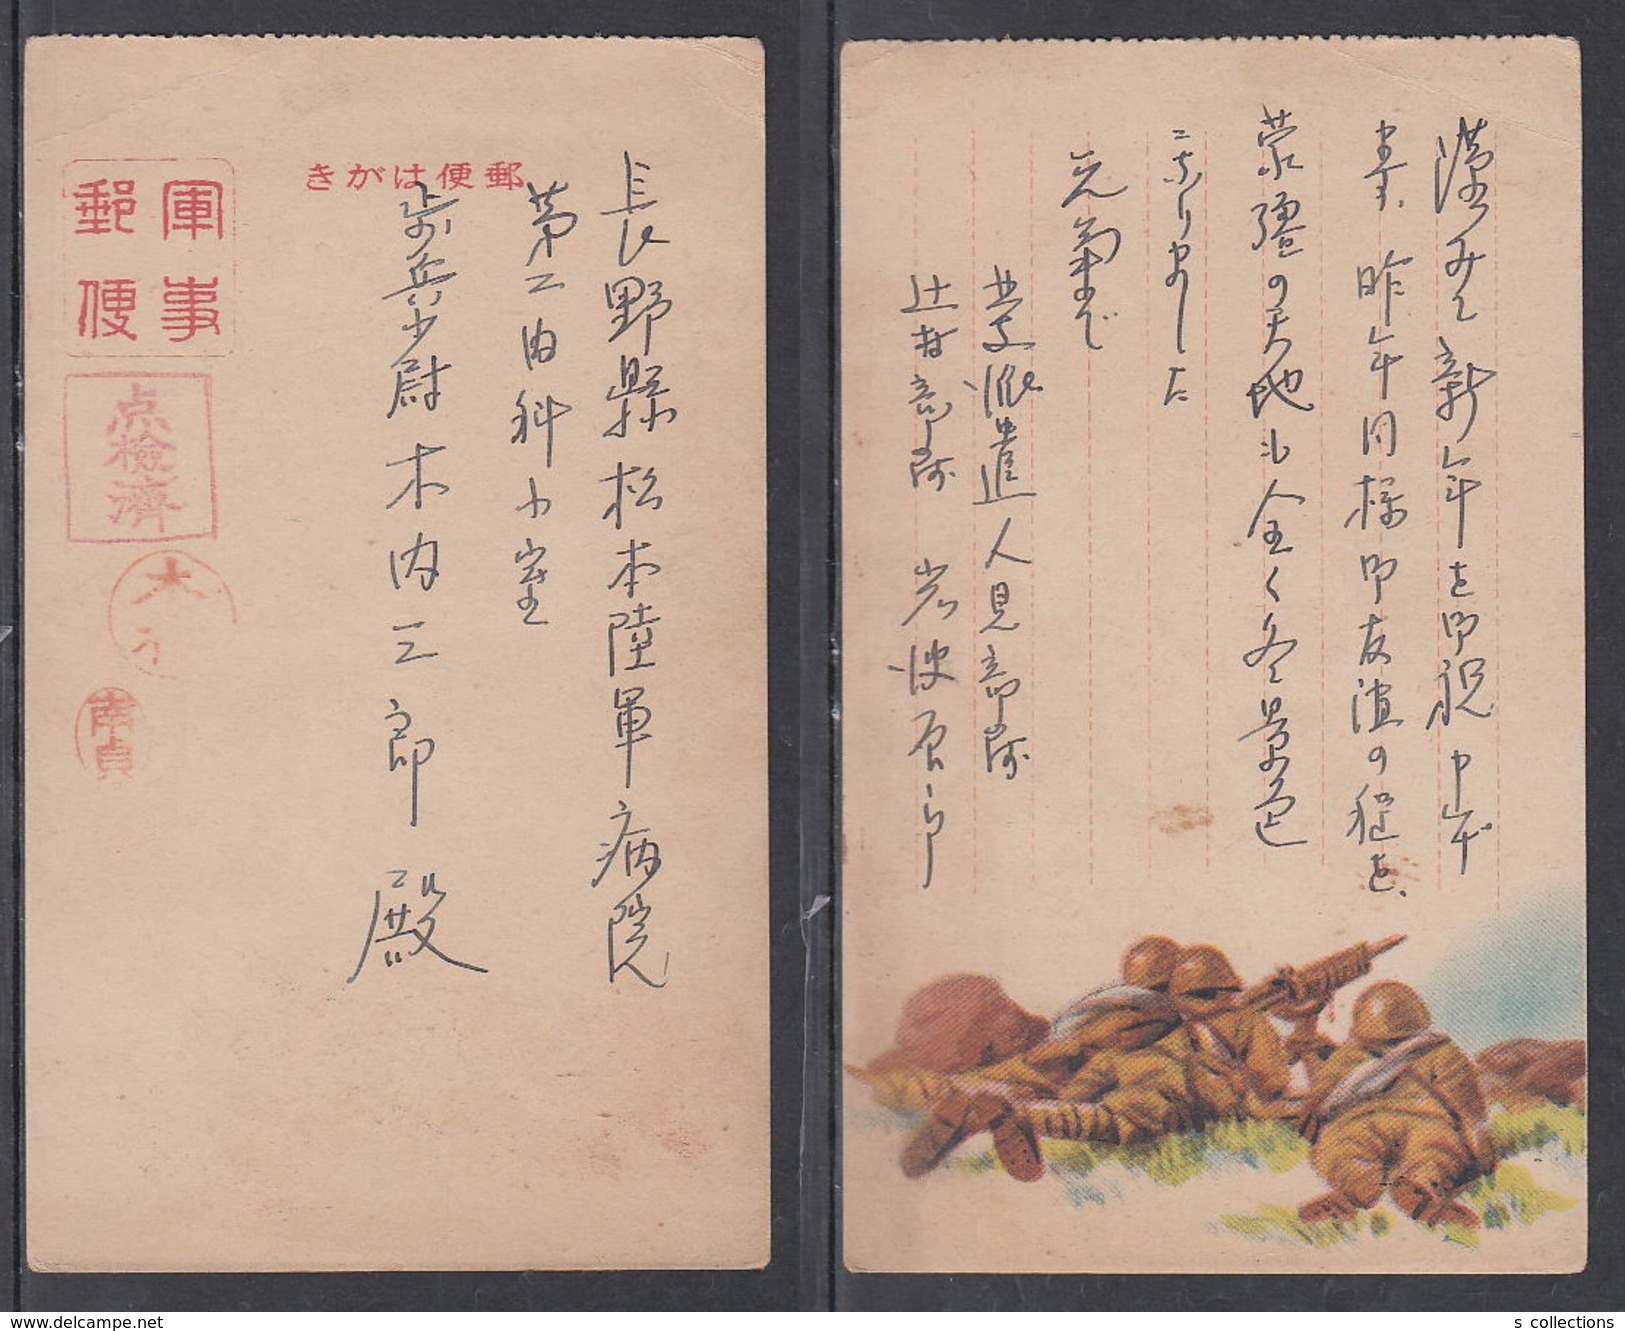 郵便はがき
軍事
郵便
点検済
南貞
長野縣松本陸軍病院
第二内科小室
歩兵少尉木内三郎殿
謹みて新年を御祝申上
ます、昨年同様御友誼の程を、
蒙疆の天地も全く冬景色
になりました
元氣で
北支派遣人見部隊
辻村部隊
s collections